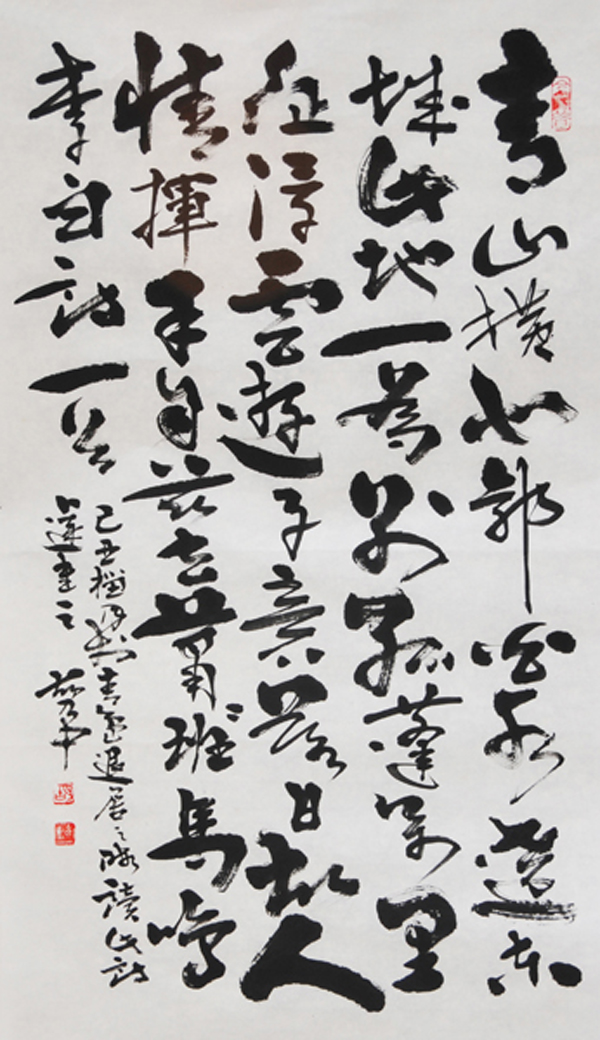 青山橫北郭白水遶東
城此地一為別孤蓬萬里
征浮雲遊子意落日故人
情揮手自茲去蕭〻班馬鳴
李白詩一首
己丑榴月於青島退居之 讀此詩
遂書之